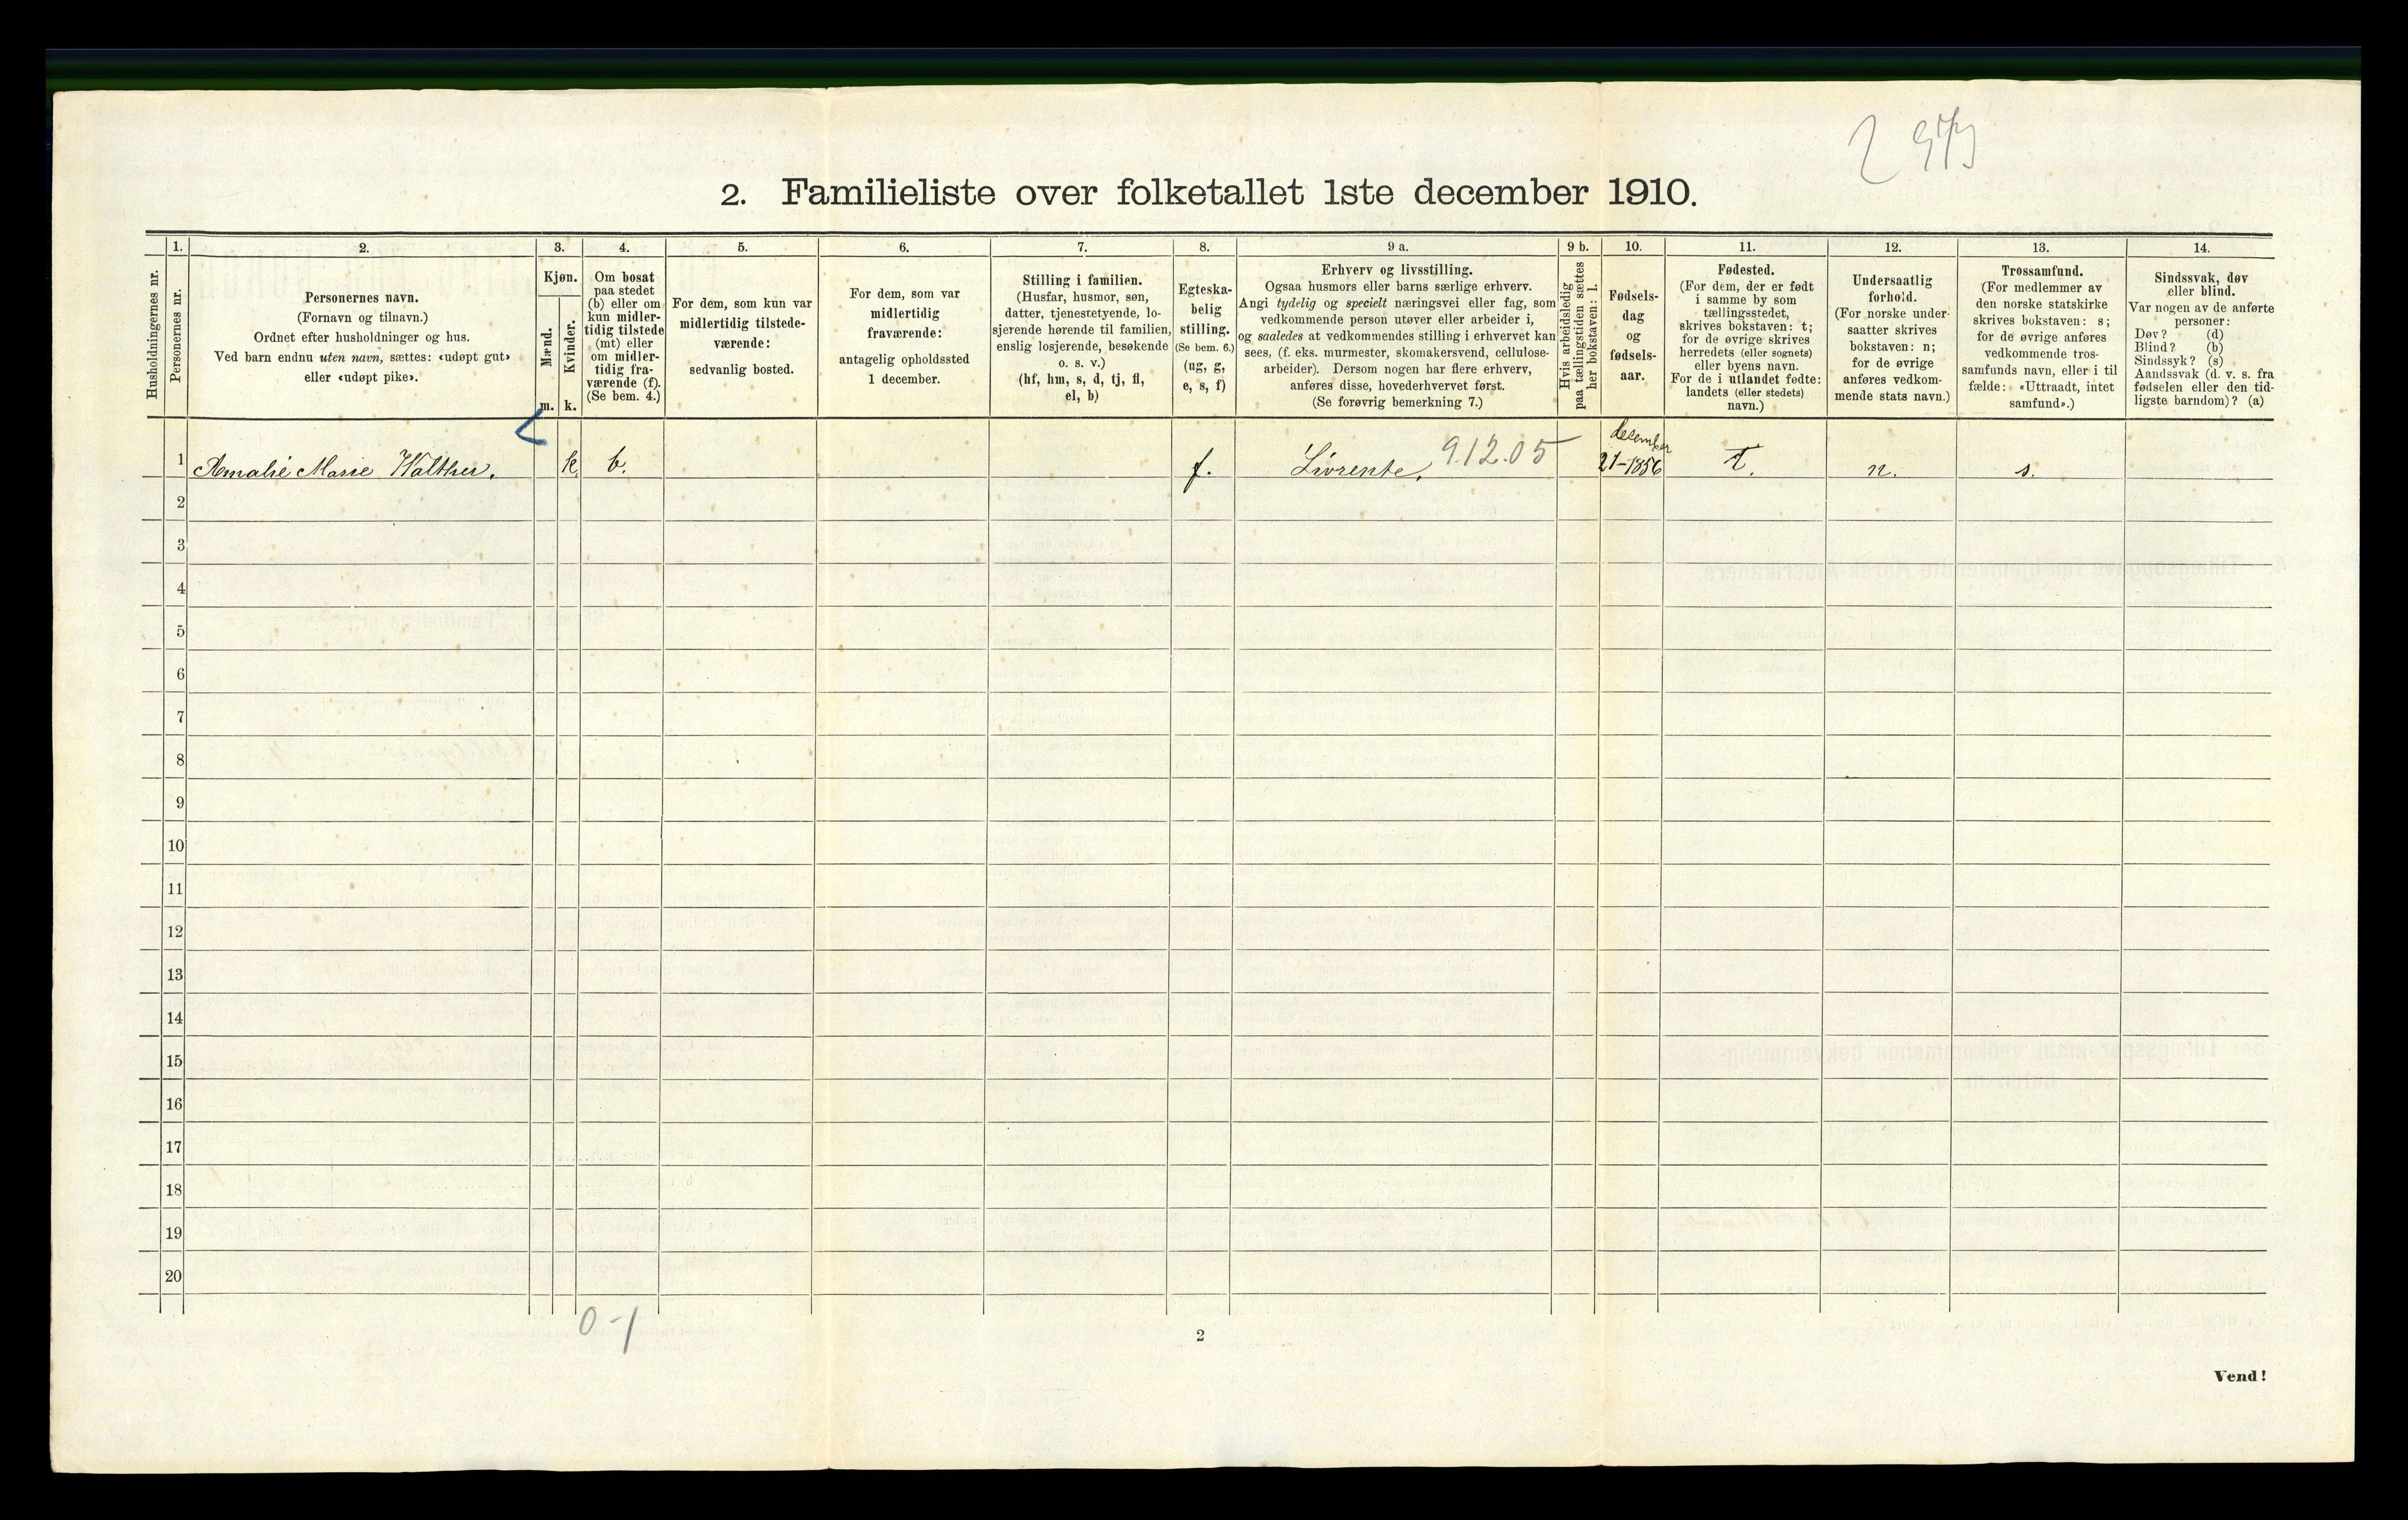 2. Familieliste over folketallet 1ste december 1910.
Husholdningernes nr.
1.
Personernes nr.
2.
Personernes navn.
(Fornavn og tilnavn.)
Ordnet efter husholdninger og hus.
Ved barn endnu uten navn, sættes: «udøpt gut»
eller «udøpt pike».
3.
Kjøn.
Mænd.
m.
Kvinder.
k.
4.
Om bosat
paa stedet
(b) eller om
kun midler-
tidig tilstede
(mt) eller
om midler-
tidig fra-
værende (f).
(Se bem. 4.)
5.
For dem, som kun var
midlertidig tilstede-
værende:
sedvanlig bosted.
6.
For dem, som var
midlertidig
fraværende:
antagelig opholdssted
1 december.
7.
Stilling i familien.
(Husfar, husmor, søn,
datter, tjenestetyende, lo-
sjerende hørende til familien,
enslig losjerende, besøkende
o. s. v.)
(hf, hm, s, d, tj, fl,
el, b)
8.
Egteska-
belig
stilling.
(Se bem. 6.)
(ug, g,
e, s, f)
9 a.
Erhverv og livsstilling.
Ogsaa husmors eller barns særlige erhverv.
Angi tydelig og specielt næringsvei eller fag, som
vedkommende person utøver eller arbeider i,
og saaledes at vedkommendes stilling i erhvervet kan
sees, (f. eks. murmester, skomakersvend, cellulose-
arbeider). Dersom nogen har flere erhverv,
anføres disse, hovederhvervet først.
(Se forøvrig bemerkning 7.)
9 b.
Hvis arbeidsledig
paa tællingstiden sættes
her bokstaven: l.
10.
Fødsels-
dag
og
fødsels-
aar.
11.
Fødested.
(For dem, der er født
i samme by som
tællingsstedet,
skrives bokstaven: t;
for de øvrige skrives
herredets (eller sognets)
eller byens navn.
For de i utlandet fødte:
landets (eller stedets)
navn.)
12.
Undersaatlig
forhold.
(For norske under-
saatter skrives
bokstaven: n;
for de øvrige
anføres vedkom-
mende stats navn.)
13.
Trossamfund.
(For medlemmer av
den norske statskirke
skrives bokstaven: s;
for de øvrige anføres
vedkommende tros-
samfunds navn, eller i til
fælde: «Uttraadt, intet
samfund».)
14.
Sindssvak, døv
eller blind.
Var nogen av de anførte
personer:
Døv? (d)
Blind? (b)
Sindssyk? (s)
Aandssvak (d. v. s. fra
fødselen eller den tid-
ligste barndom)? (a)
1 Amalie Marie Walther. k b. f. Livrente. 9.12.05 desember 21-1856 t. n. s.
2
3
4
5
6
7
8
9
10
11
12
13
14
15
16
17
18
19
20
0-1
2
Vend!